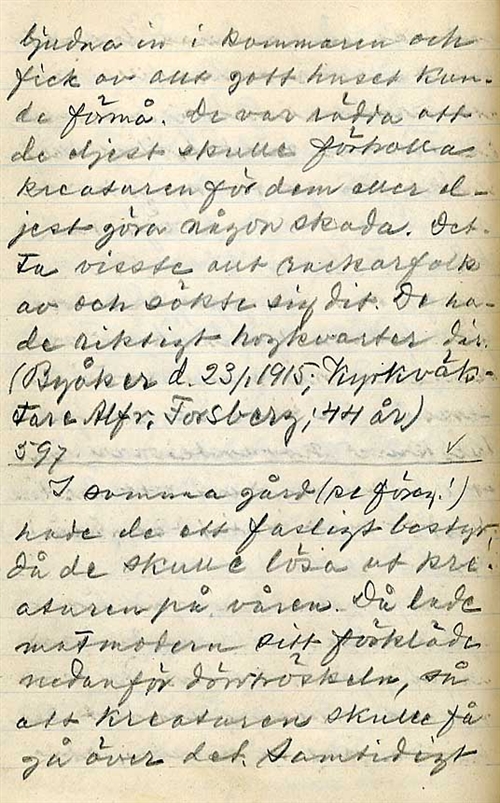 bjudna in i kammaren och
fick av allt gott huset kun-
de förmå. De var rädda att
de eljest skulle förtrolla
kreaturen för dem eller el-
jest göra någon skada. Det-
ta visste allt rackarfolk
av och sökte sig dit. De ha-
de riktigt högkvarter där.
(Byåker d. 23/1 1915, Kyrkväk-
tare Alfr. Forsberg, 44 år)
597
I samma gård (se föreg.!)
hade de ett fasligt bestyr,
då de skulle lösa ut kre-
aturen på våren. Då lade
matmodern sitt förkläde
nedanför dörrtröskeln, så
att kreaturen skulle få
gå över det. Samtidigt